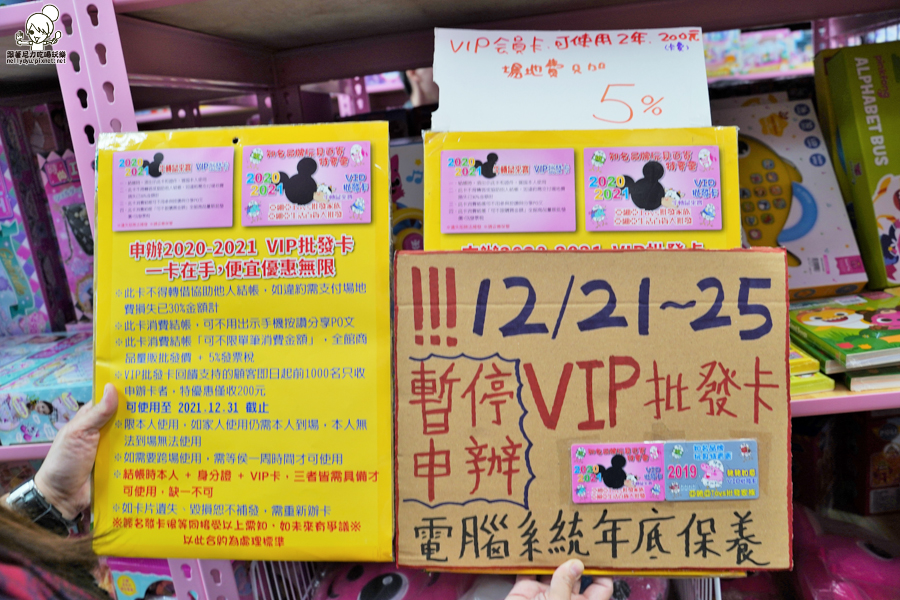 跟著尼力吃喝玩樂
nellydyu.pixnet.net
VIP會員卡 可使用2年. 200元
(卡費)
場地費只加
5%
2020
2021
VIP
批發卡
2020
2021
VIP
批發卡
申辦2020-2021 VIP批發卡
一卡在手,便宜優惠無限
※此卡不得轉借協助他人結帳,如違約需支付場地
費損失已30%金額計
※此卡消費結帳,可不用出示手機按讚分享PO文
※此卡消費結帳「可不限單筆消費金額」,全館商
品量販批發價 + 5%發票稅
※VIP批發卡回饋支持的顧客即日起前1000名只收
申辦卡者,特優惠僅收200元
可使用至 2021.12.31 截止
※限本人使用,如家人使用仍需本人到場,本人無
法到場無法使用
※如需要跨場使用,需等侯一周時間才可使用
※結帳時本人 + 身分證 + VIP卡,三者皆需具備才
可使用,缺一不可
※如卡片遺失、毀損恕不補發,需重新辦卡
※簽名發卡後等同接受以上需知,如未來有爭議※
以此合約為處理標準
!!! 12/21~25
暫停
申辦
VIP批發卡
2020
2021
2019
電腦系統年底保養
ALPHABET BUS